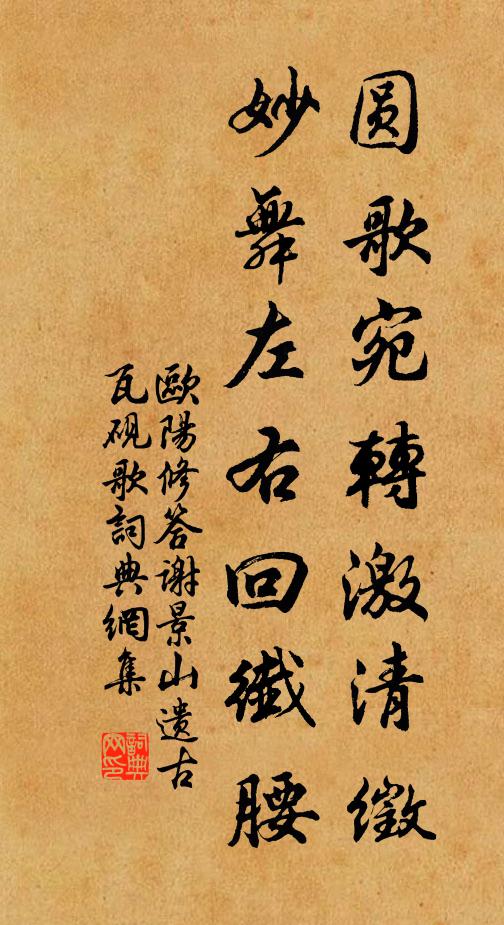 圆歌宛轉激清徵
妙舞左右回纖腰
歐陽修答謝景山遺古
瓦硯歌詞典網集
詞典網印